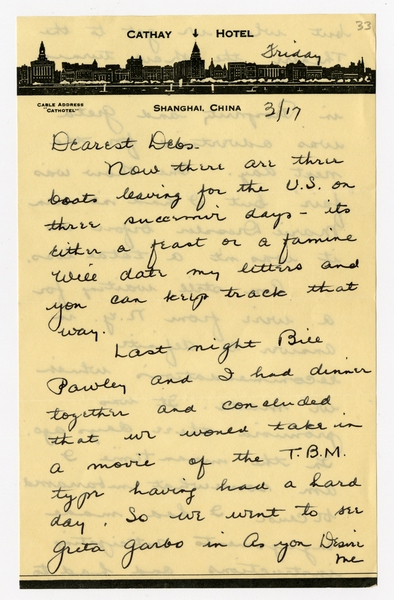 33
CATHAY HOTEL
Friday
CABLE ADDRESS
"CATHOTEL"
SHANGHAI, CHINA
3/17
Dearest Debs-
Now there are three
boats leaving for the U.S. on
three successive days - its
either a feast or a famine
Will date my letters and
you can keep track that
way.
Last night Bill
Pawley and I had dinner
together and concluded
that we would take in
a movie of the T.B.M.
type having had a hard
day. So we went to see
Greta Garbo in As you Desire
me